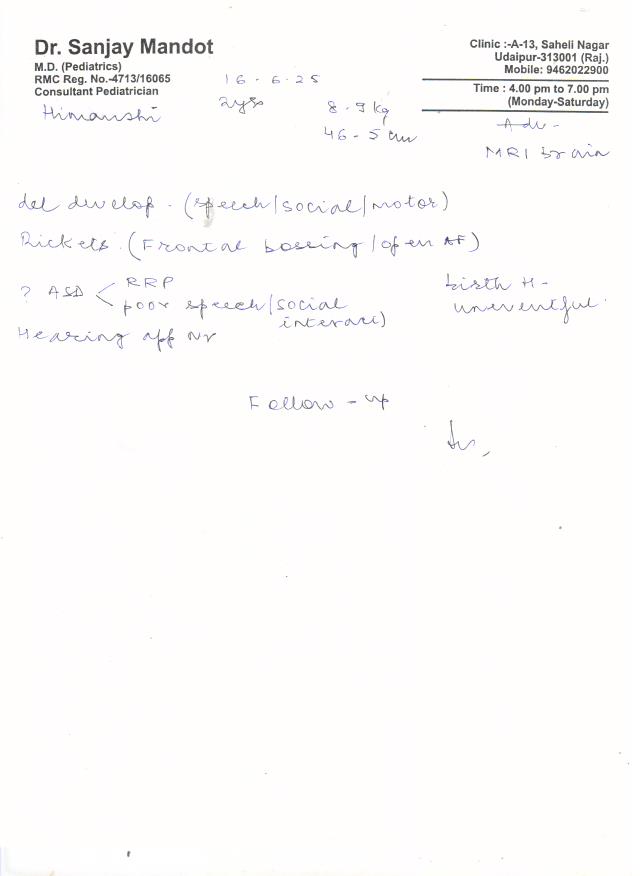 Dr. Sanjay Mandot
M.D. (Pediatrics)
RMC Reg. No.-4713/16065
Consultant Pediatrician
Clinic :-A-13, Saheli Nagar
Udaipur-313001 (Raj.)
Mobile: 9462022900
Time : 4.00 pm to 7.00 pm
(Monday-Saturday)
16-6-25
Himanshi
2yrs
8-9kg
46-5cm
Adv-
MRI brain
del develop. (speech/social/motor)
Rickets. (Frontal bossing/open AF)
? ASD
RRP
poor speech/social
interact)
birth H-
uneventful.
Hearing app Nr
Follow-up